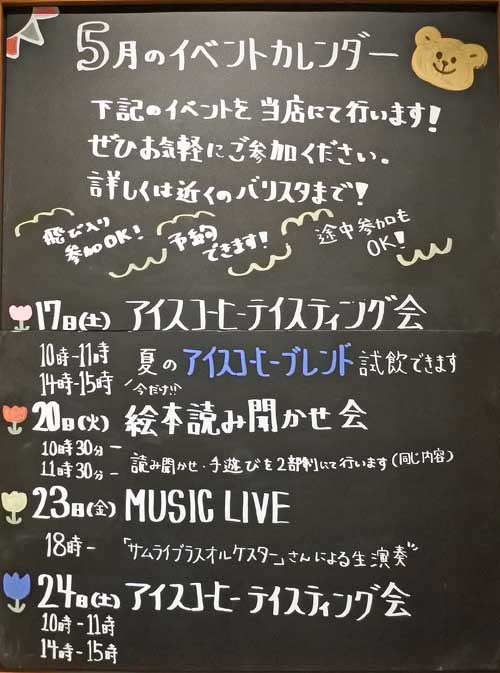 5月のイベントカレンダー
下記のイベントを当店にて行います!
ぜひお気軽にご参加ください。
詳しくは近くのバリスタまで!
飛び入り
参加OK!
予約
できます!
途中参加も
OK!
17日(土) アイスコーヒーテイスティング会
10時-11時
14時-15時
夏のアイスコーヒーブレンド試飲できます
今だけ!!
20日(火) 絵本読み聞かせ会
10時30分-
11時30分-
読み聞かせ・手遊びを2部制にて行います(同じ内容)
23日(金) MUSIC LIVE
18時- 「サムライブラスオルケスター」さんによる生演奏
24日(土) アイスコーヒーテイスティング会
10時-11時
14時-15時